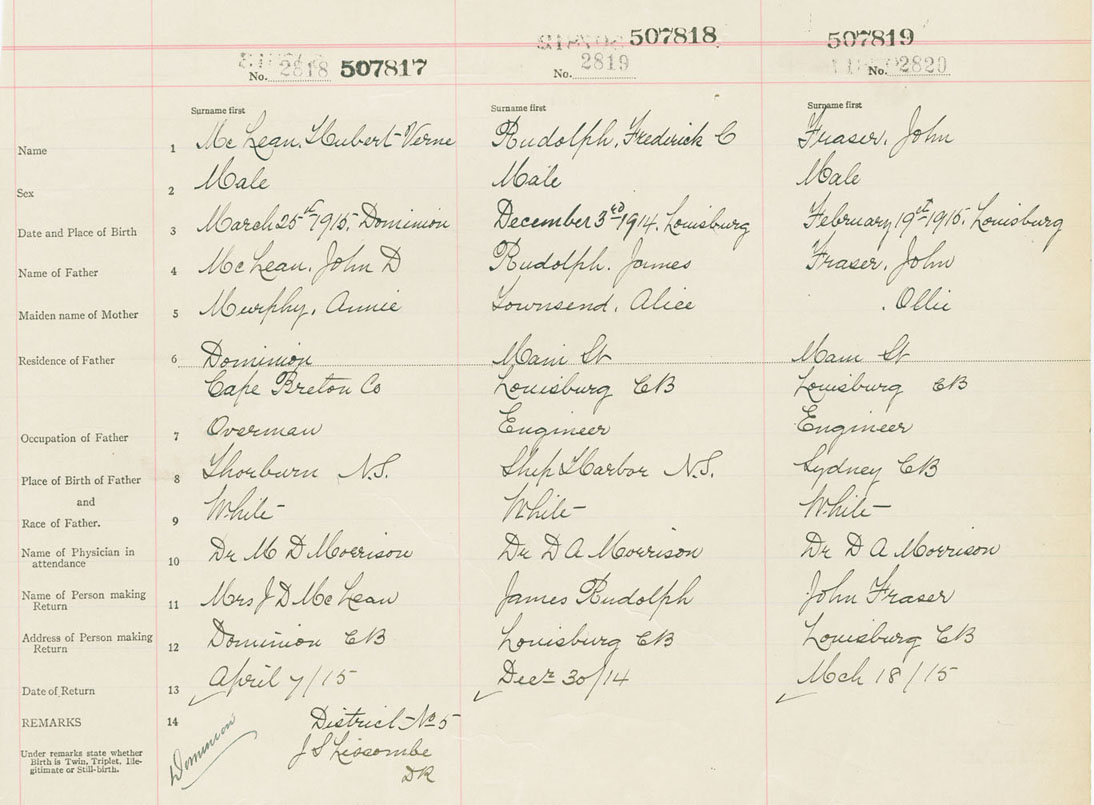 507818 507819
No. 2818 507817 No. 2819 No. 2820
Surname first Surname first Surname first
Name 1 McLean, Hubert Verne Rudolph, Frederick C Fraser, John
Sex 2 Male Male Male
Date and Place of Birth 3 March 25th 1915, Dominion December 3rd 1914, Louisburg February 19th 1915, Louisburg
Name of Father 4 McLean, John D Rudolph, James Fraser, John
Maiden name of Mother 5 Murphy, Annie Townsend, Alice , Ollie
Residence of Father 6 Dominion Main St Main St
Cape Breton Co Louisburg CB Louisburg CB
Occupation of Father 7 Overman Engineer Engineer
Place of Birth of Father 8 Thorburn N.S. Ship Harbor N.S. Sydney CB
and
Race of Father. 9 White White White
Name of Physician in
attendance 10 Dr M D Morrison Dr D A Morrison Dr D A Morrison
Name of Person making
Return 11 Mrs J D McLean James Rudolph John Fraser
Address of Person making
Return 12 Dominion CB Louisburg CB Louisburg CB
Date of Return 13 April 7/15 Decr 30/14 Mch 18/15
REMARKS 14 District No 5
Under remarks state whether
Birth is Twin, Triplet, Ille-
gitimate or Still-birth.
Dominion
J S Liscombe
DR